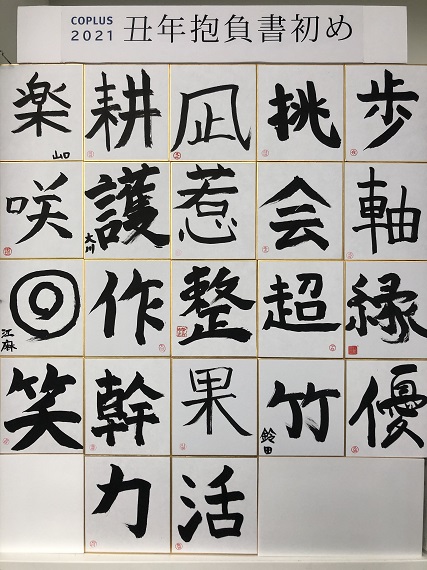 COPLUS
2021 丑年抱負書初め
楽 耕 凪 挑 歩
山口
咲 護 惹 会 軸
大川
◎ 作 整 超 縁
江麻
笑 幹 果 竹 優
鈴田
力 活